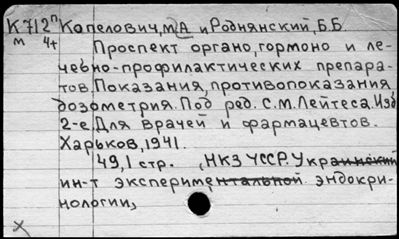 К712п Копелович, М.А. и Роднянский, Б.Б.
м 4+ Проспект органо, гормоно и ле-
чебно-профилактических препара-
тов. Показания, противопоказания,
дозометрия. Под ред. С.М.Лейтеса. Изд.
2-е. Для врачей и фармацевтов.
Харьков, 1941.
49,1 стр. , НКЗ УССР. Украинский
ин-т экспериментальной эндокри-
нологии,
х